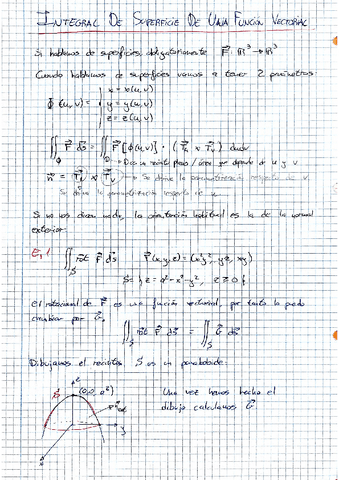 INTEGRAL DE SUPERFICIE DE UNA FUNCIÓN VECTORIAL
Si hablamos de superficies, obligatoriamente F⃗: ℝ³→ℝ³
Cuando hablamos de superficies vamos a tener 2 parámetros
x = x(u,v)
ϕ(u,v) = y = y(u,v)
z = z(u,v)
∬_ϕ F⃗ ds⃗ = ∬_ϕ F⃗[ϕ(u,v)] · (T⃗u × T⃗v) dudv
n⃗ = T⃗u × T⃗v → Se deriva la parametrización respecto de v
Se deriva la parametrización respecto de u
Si no nos dicen nada, la orientación habitual es la de la normal
exterior.
Ej 1 ∬_S rot F⃗ ds⃗ F⃗(x,y,z) = (x²y², yz, xy)
S = { z = a² - x² - y², z ≥ 0 }
El rotacional de F⃗ es una función vectorial, por tanto lo puedo
cambiar por G⃗.
∬_S rot F⃗ ds⃗ = ∬_S G⃗ ds⃗
Dibujamos el recinto S es un paraboloide.
z
S (0,0,a²)
y
x
Una vez hemos hecho el
dibujo calculamos G⃗.